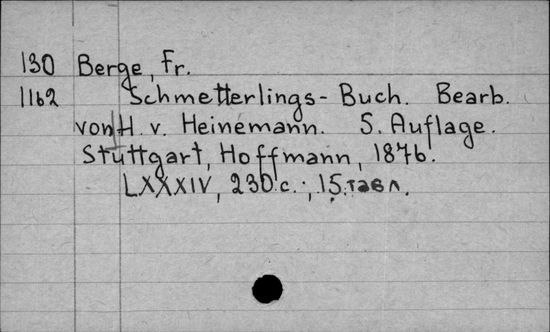 130 Berge, Fr.
1162 Schmetterlings-Buch. Bearb.
von H. v. Heinemann. 5. Auflage.
Stuttgart, Hoffmann, 1876.
LXXXIV, 230 с., 15 табл.